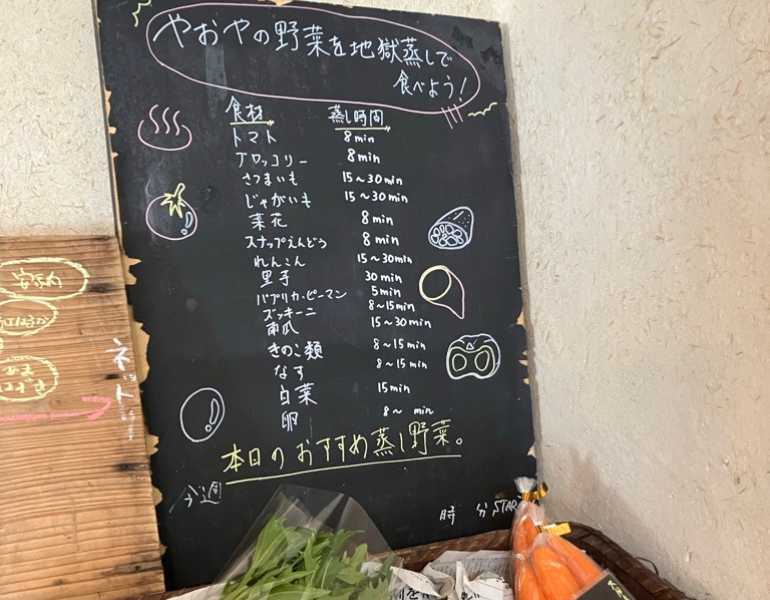 やおやの野菜を地獄蒸しで
食べよう!
食材 蒸し時間
トマト 8min
ブロッコリー 8min
さつまいも 15〜30min
じゃがいも 15〜30min
菜花 8min
スナップえんどう 8min
れんこん 15〜30min
里芋 30min
パプリカ・ピーマン 5min
ズッキーニ 8〜15min
南瓜 15〜30min
きのこ類 8〜15min
なす 8〜15min
白菜 15min
卵 8〜 min
本日のおすすめ蒸し野菜。
今週
時 分 START